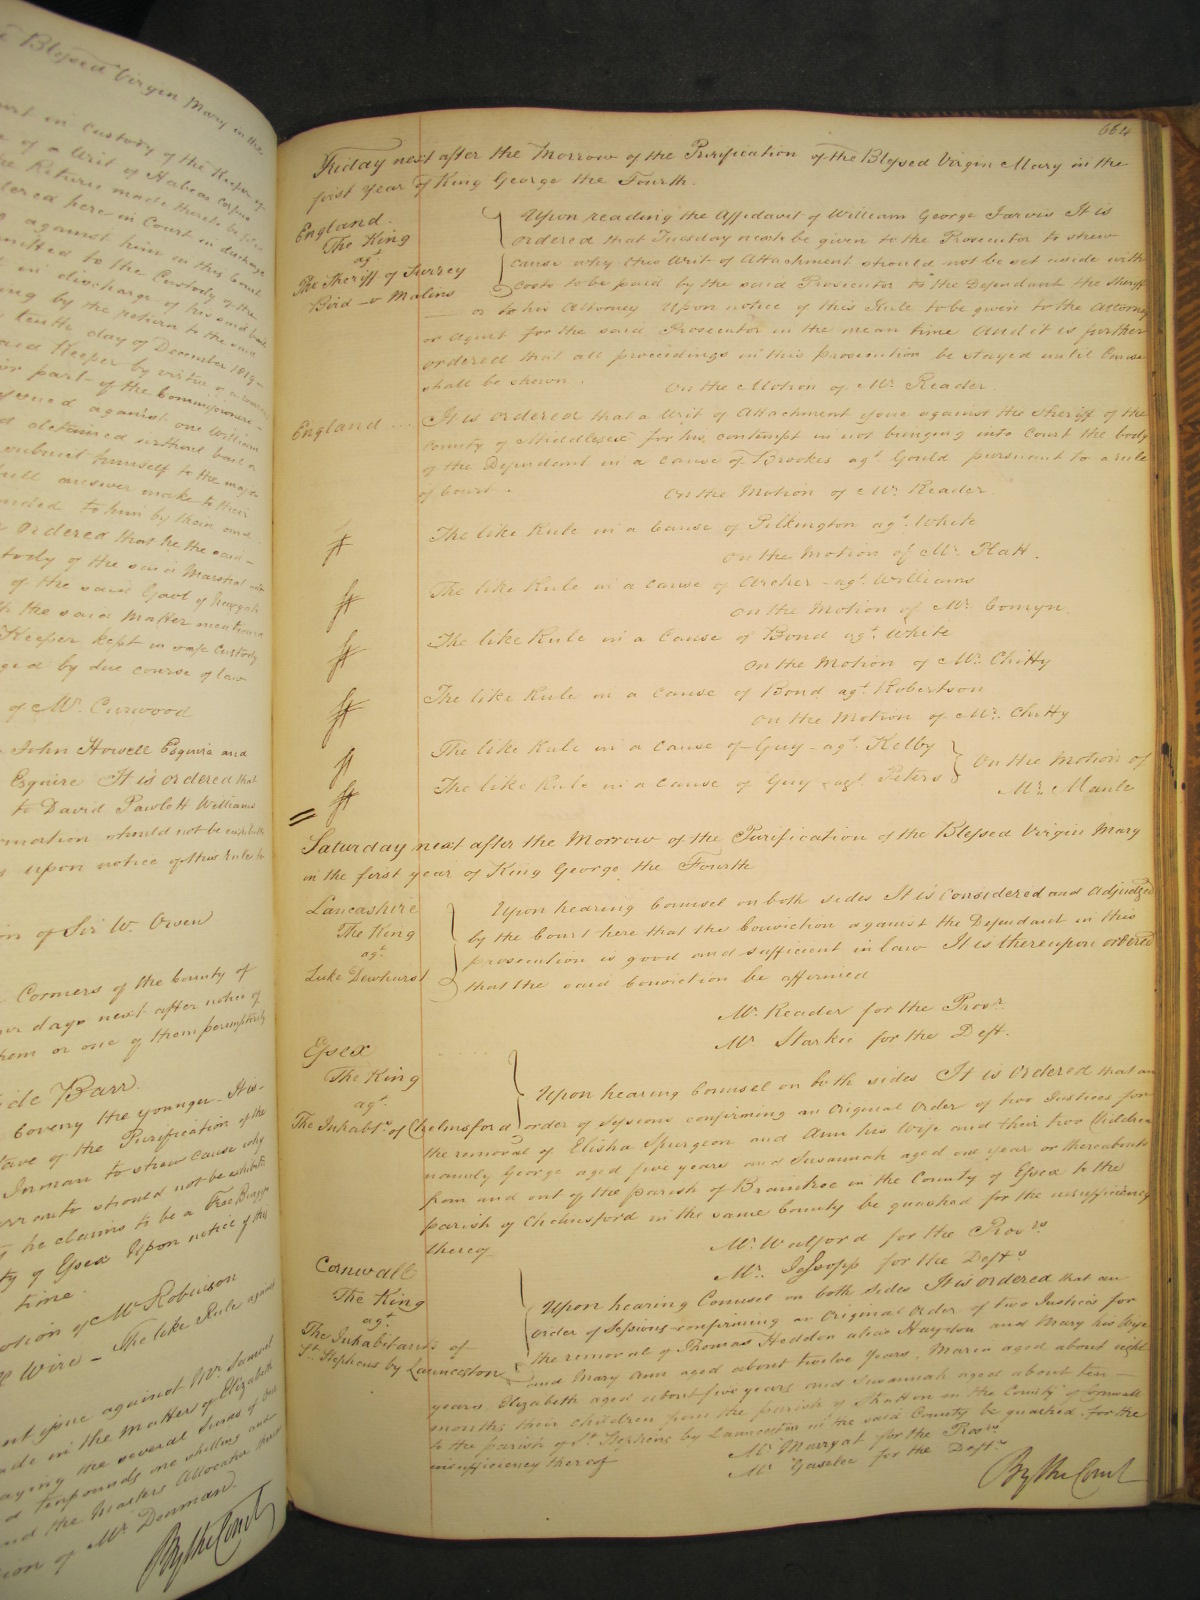 e Blessed Virgin Mary in the
ourt in Custody of the Keeper of
e of a Writ of Habeas Corpus
he Return made thereto be filed
dered here in Court in discharge
against him in this Court
mitted to the Custody of the
in discharge of his said bail
ing by the return to the said
tenth day of December 1819
said Keeper by virtue of a warrant
or part of the Commissioners
issued against one William
d detained without bail or
submit himself to the major
full answer make to their
unded to him by them and
Ordered that he the said
tody of the said Marshal
of the said Gaol of Newgate
the said Matter mentioned
Keeper kept in safe Custody
ged by due course of law
of Mr. Curwood
John Howell Esquire and
Esquire It is ordered that
to David Pawlett Williams
rmation should not be exhibited
upon notice of this Rule to
on of Sir W. Owen
Coroners of the County of
days next after notice of
hem or one of them peremptorily
ide Barr.
Coveny the younger. His
tave of the Purification of the
Inman to shew cause why
arranto should not be exhibited
he claims to be a Free Burgess
ty of Essex Upon notice of this
time.
otion of Mr Robinson
Wire - The like Rule against
nt issue against Mr. Samuel
ade in the matter of Elizabeth
aying the several sums of
d ten pounds one shilling and
nd the Masters Allocatur
ion of Mr Denman.
By the Court
664
Friday next after the Morrow of the Purification of the Blessed Virgin Mary in the
first Year of King George the Fourth.
England.
The King
agt.
The Sheriff of Surrey
Bird v Malins
Upon reading the Affidavit of William George Jarvis It is
ordered that Tuesday next be given to the Prosecutor to shew
cause why the Writ of Attachment should not be set aside with
costs to be paid by the said Prosecutor to the Defendant the Sheriff
or to his Attorney Upon notice of this Rule to be given to the Attorney
or Agent for the said Prosecutor in the mean time And it is further
ordered that all proceedings in this prosecution be stayed until Cause
shall be shewn. On the Motion of Mr. Reader.
England ... It is ordered that a Writ of Attachment issue against the Sheriff of the
County of Middlesex for his contempt in not bringing into Court the body
of the Defendant in a cause of Brookes agt. Gould pursuant to a rule
of Court. On the Motion of Mr. Reader.
The like Rule in a Cause of Pilkington agt. White
On the Motion of Mr. Platt.
The like Rule in a Cause of Archer agt. Williams
On the Motion of Mr. Comyn.
The like Rule in a Cause of Bond agt. White
On the Motion of Mr. Chitty
The like Rule in a Cause of Bond agt. Robertson
On the Motion of Mr. Chitty
The like Rule in a Cause of Guy agt. Kelby
The like Rule in a Cause of Guy agt Peters
On the Motion of
Mr. Maule
Saturday next after the Morrow of the Purification of the Blessed Virgin Mary
in the first year of King George the Fourth
Lancashire
The King
agt.
Luke Dewhurst
Upon hearing Counsel on both sides It is considered and adjudged
by the Court here that the Conviction against the Defendant in this
prosecution is good and sufficient in law It is thereupon ordered
that the said Conviction be affirmed
Mr. Reader for the Pros.r
Mr Starkie for the Deft.
Essex
The King
agt.
The Inhabts. of Chelmsford
Upon hearing Counsel on both sides It is ordered that an
order of Sessions confirming an Original Order of two Justices for
the removal of Elisha Spurgeon and Ann his Wife and their two Children
namely George aged five years and Susannah aged one year or thereabouts
from and out of the parish of Braintree in the County of Essex to the
parish of Chelmsford in the same County be quashed for the insufficiency
thereof
Mr. Walford for the Prors
Mr. Jessopp for the Defts
Cornwall
The King
agt.
The Inhabitants of
St. Stephens by Launceston
Upon hearing Counsel on both sides It is ordered that an
order of Sessions confirming an Original Order of two Justices for
the removal of Thomas Heddon alias Haydon and Mary his Wife
and Mary Ann aged about twelve Years, Maria aged about eight
years, Elizabeth aged about five years and Susannah aged about ten
months their children from the parish of Stratton in the County of Cornwall
to the parish of St. Stephens by Launceston in the said County be quashed for the
insufficiency thereof
Mr. Marryat for the Prors.
Mr Gaselee for the Defts.
By the Court